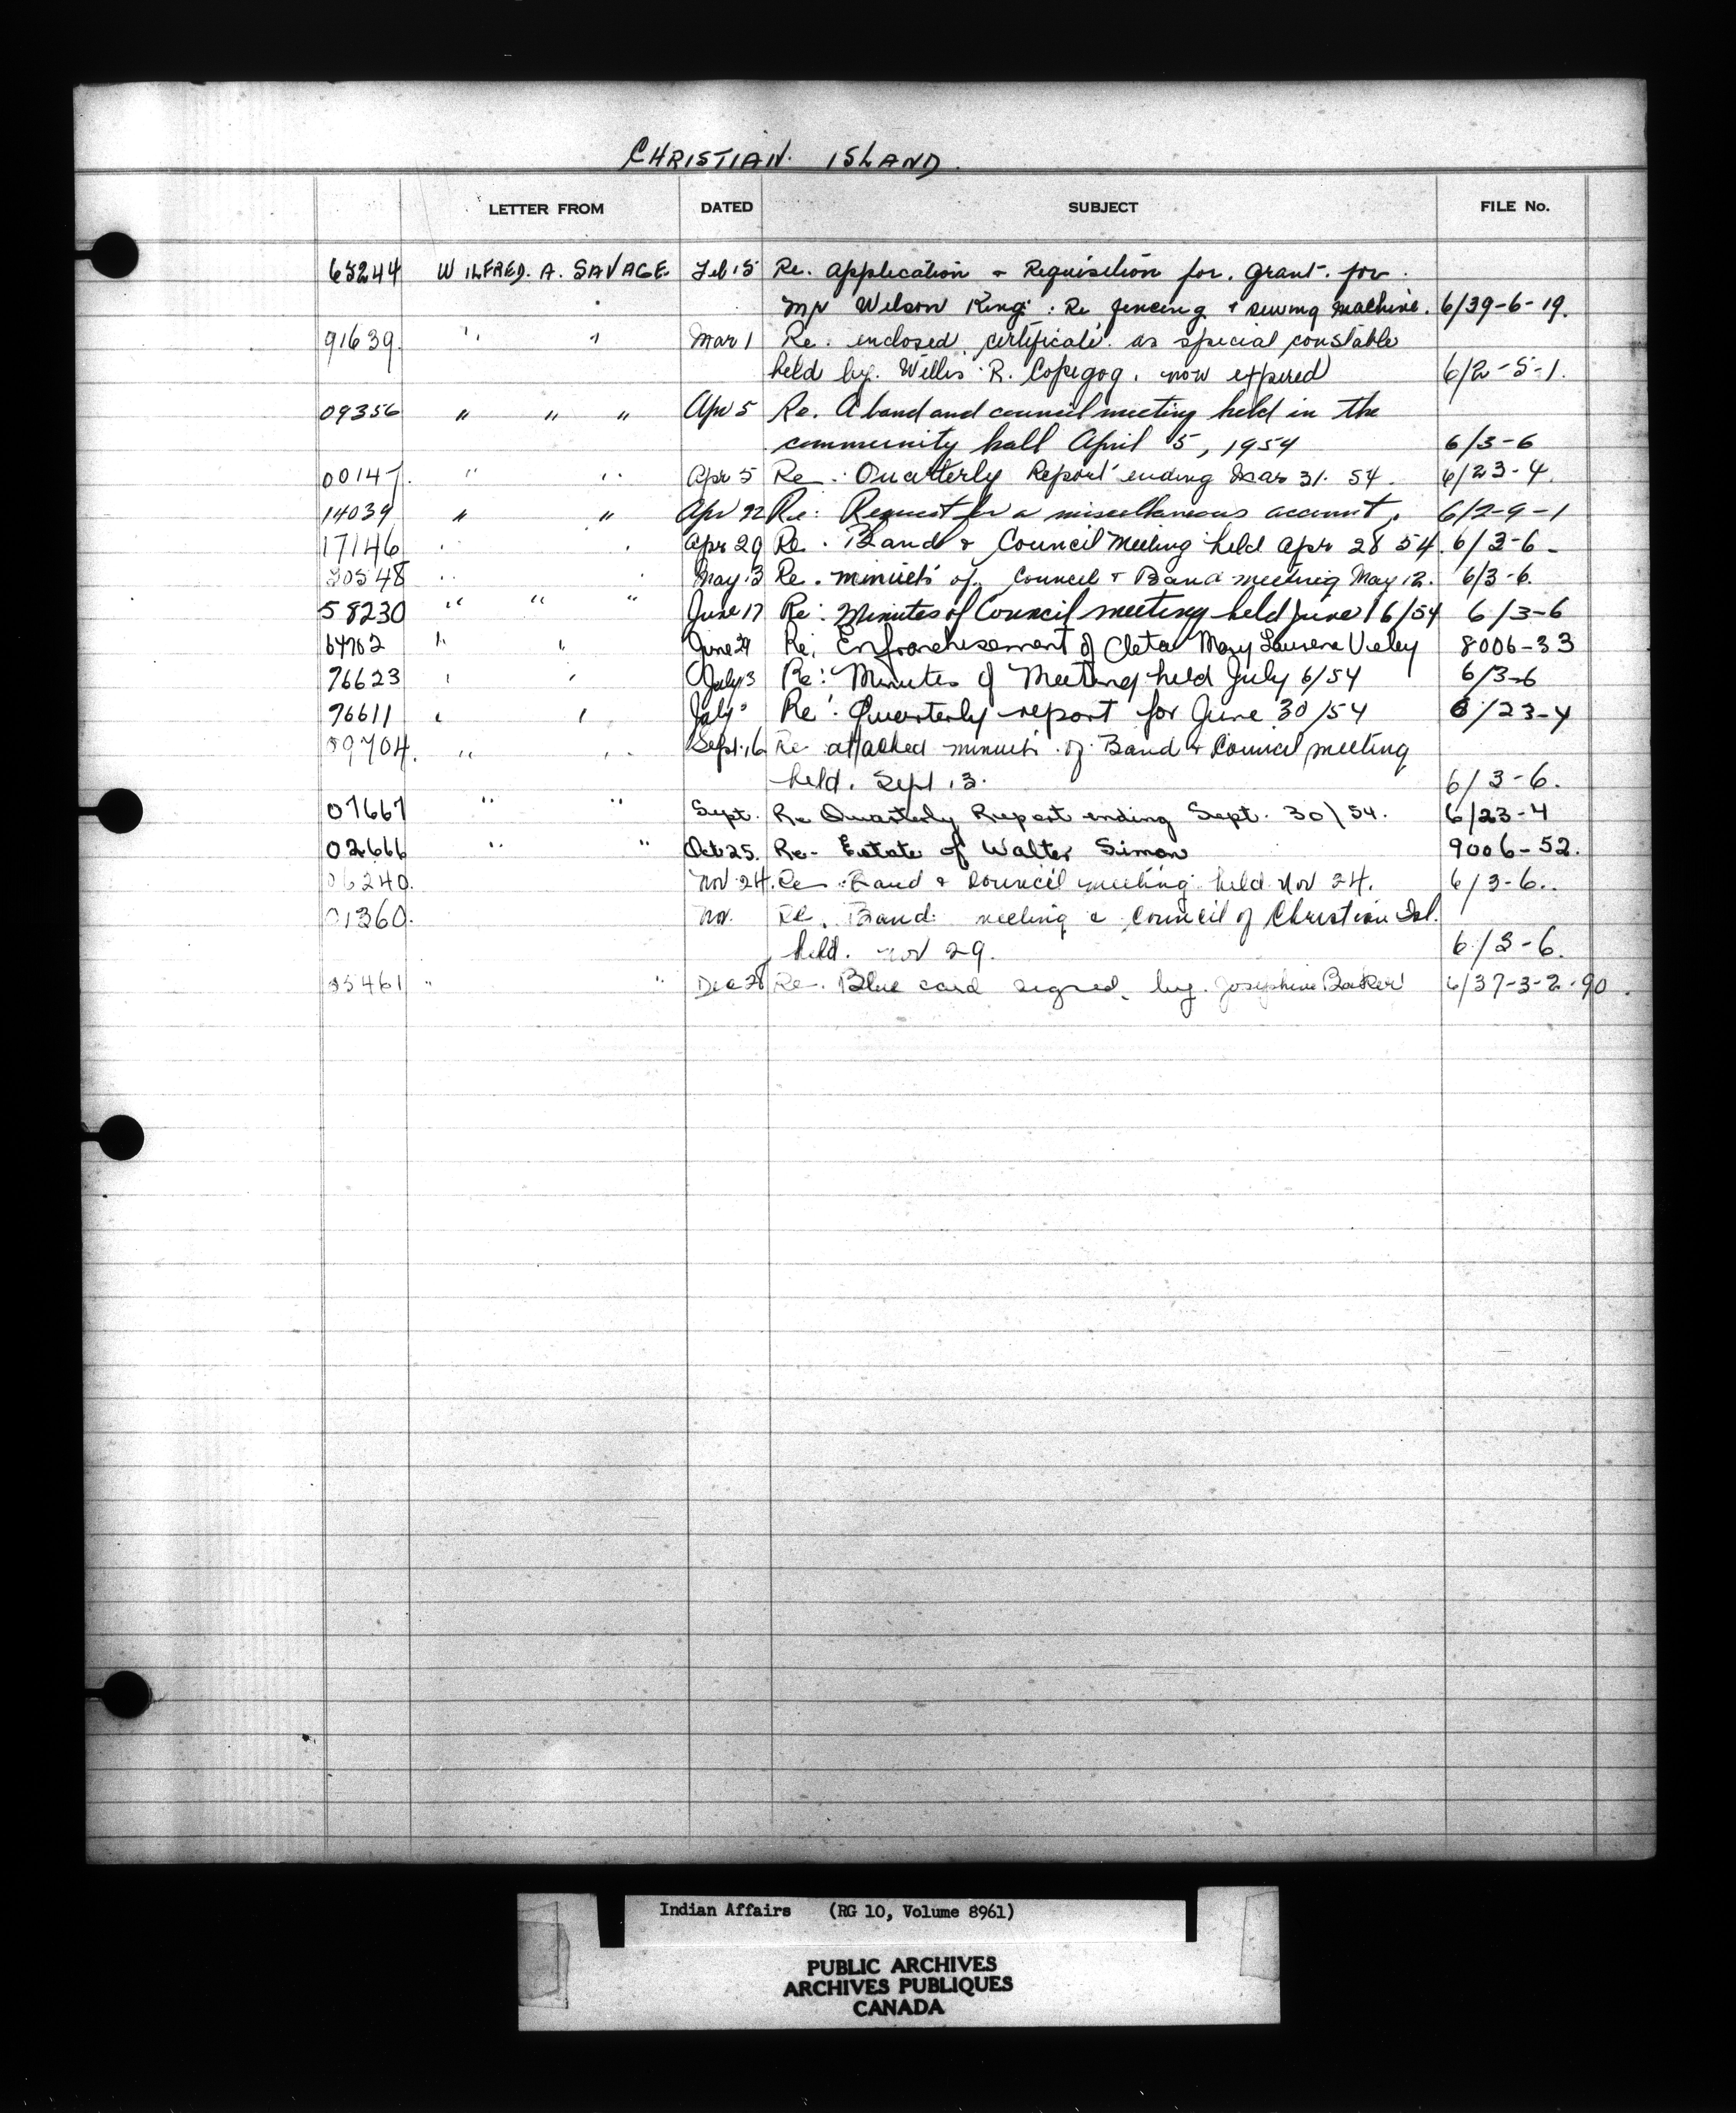 CHRISTIAN. ISLAND.
LETTER FROM DATED SUBJECT FILE No.
65244 WILFRED. A. SAVAGE. Feb 15 Re. application & Requisition for. grant. for.
Mr Wilson King : Re fencing & sewing machine. 6/39-6-19.
91639. " " Mar 1 Re. enclosed certificate. as special constable
held by. Willis R. Copegog. now expired 6/2-5-1.
09356 " " " Apr 5 Re. A band and council meeting held in the
community hall April 5, 1954 6/3-6
00147. " " Apr 5 Re. Quarterly Report ending Mar 31. 54. 6/23-4.
14039 " " Apr 22 Re: Request for a miscellaneous account. 6/2-9-1
17146 " " Apr 29 Re. Band & Council Meeting held Apr 28 54. 6/3-6-
20548 " " May 13 Re. minuets of Council & Band meeting May 12. 6/3-6.
58230 " " " June 17 Re: Minutes of Council meeting held June 16/54 6/3-6
64702 " " June 29 Re: Enfranchisement of Cleta Mary Laurene 8006-33
76623 " " July 13 Re: Minutes of Meeting held July 6/54 6/3-6
76611 " " July Re: Quarterly report for June 30/54 6/23-4
09704. " " Sept. 16 Re attached minuets of Band & Council meeting
held. Sept 13. 6/3-6.
07667 " " Sept. Re Quarterly Report ending Sept. 30/54. 6/23-4
02666 " " Oct 25. Re- Estate of Walter Simon 9006-52.
06240. Nov 24. Re. Band & Council meeting held Nov 24. 6/3-6..
01360. Nov. Re. Band meeting & Council of Christian Isl.
held. Nov 29. 6/3-6.
05461 " " Dec 28 Re. Blue card signed. by. Josephine Baker 6/37-3-2-90.
Indian Affairs (RG 10, Volume 8961)
PUBLIC ARCHIVES
ARCHIVES PUBLIQUES
CANADA